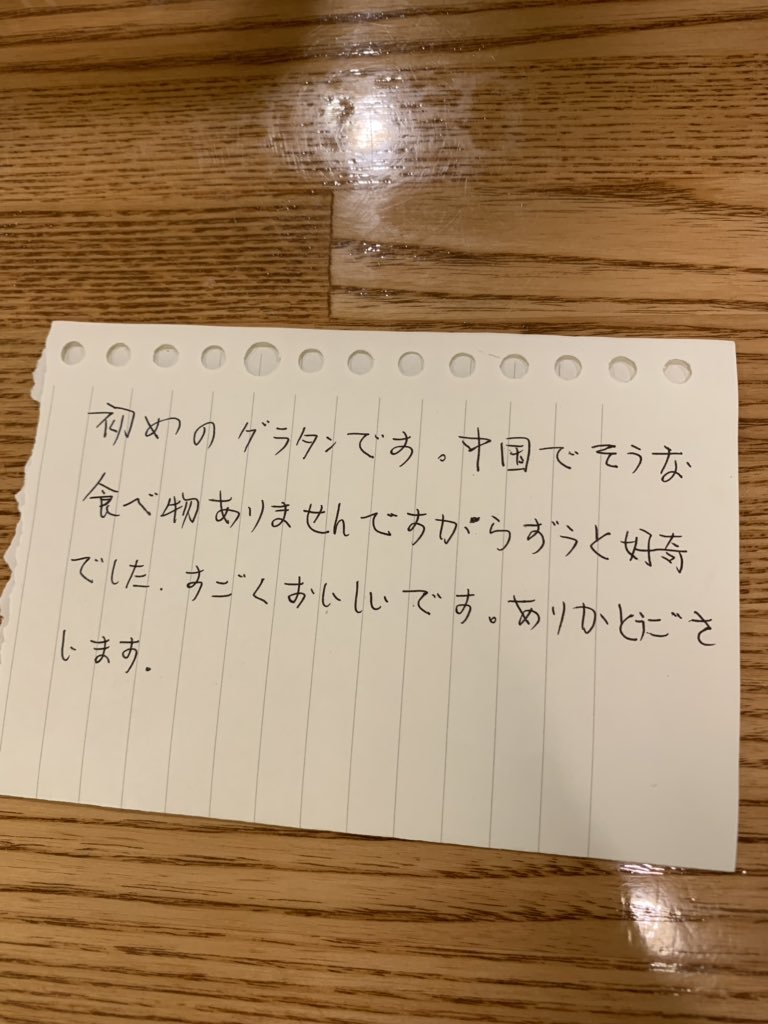 初めのグラタンです。中国でそうな
食べ物ありませんですがらずうと好奇
でした.すごくおいしいです。ありかとうごさ
います.